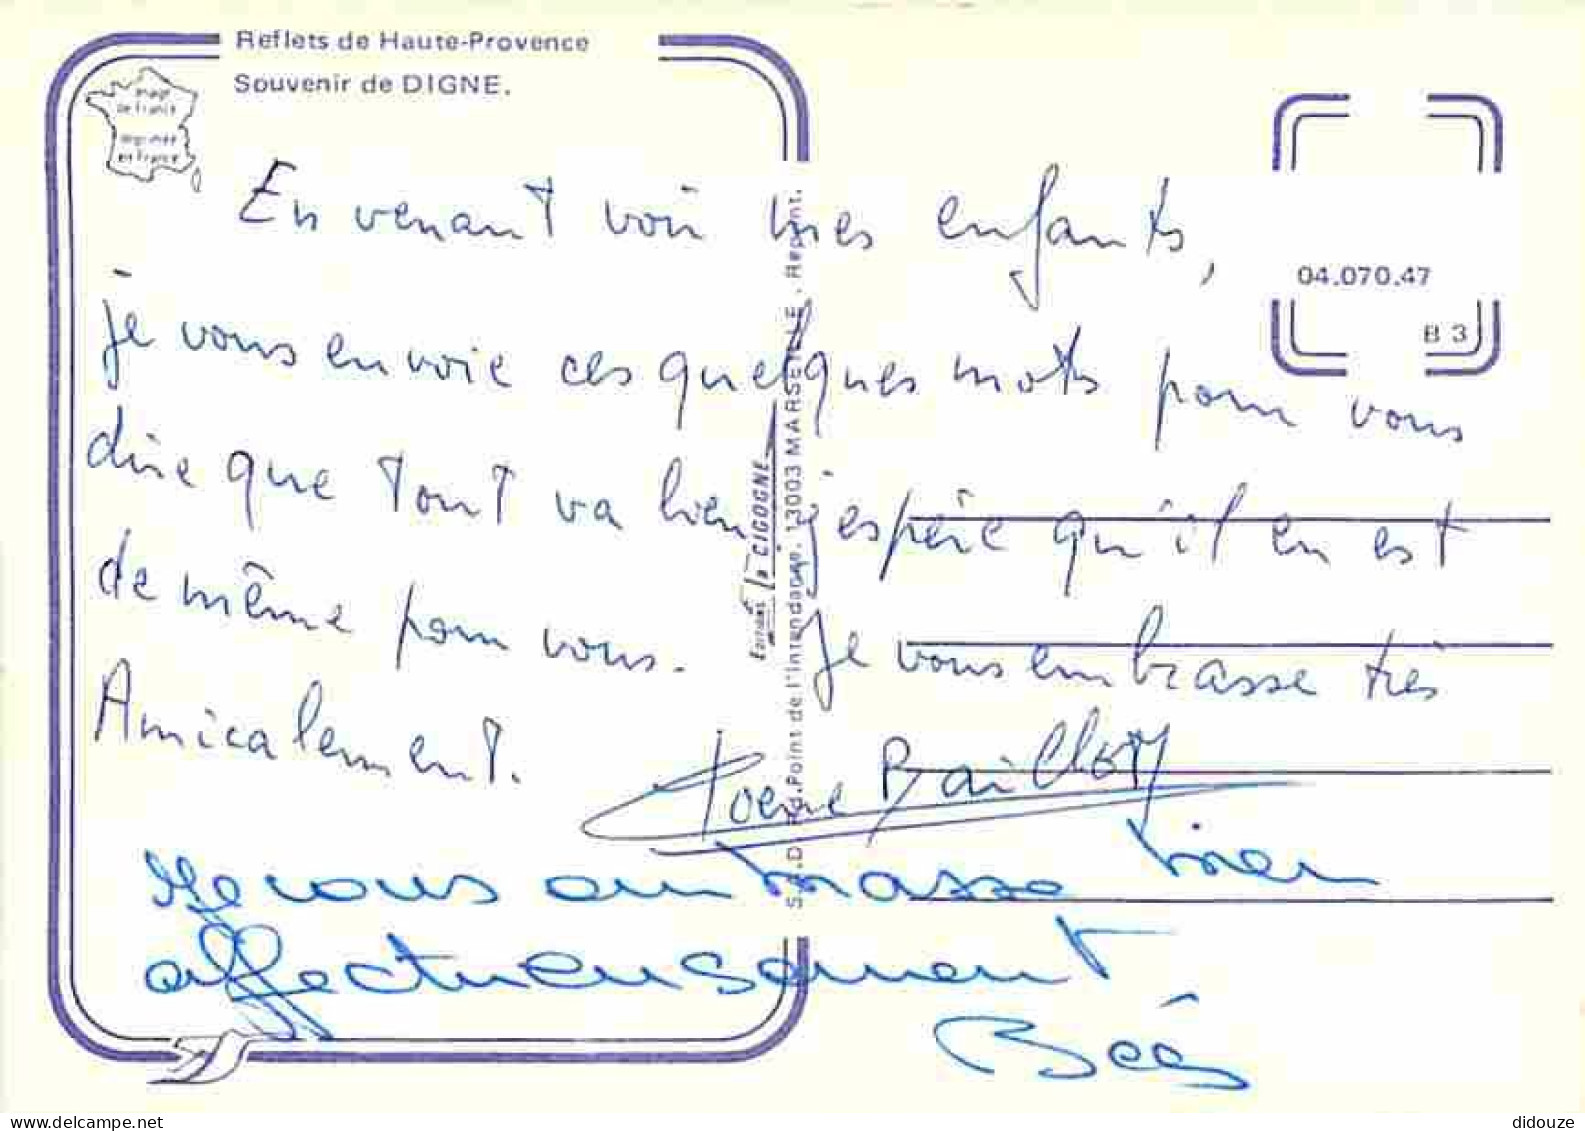 Reflets de Haute-Provence
Souvenir de DIGNE.
Image
de France
imprimée
en France
04.070.47
B 3
En venant voir mes enfants,
je vous envoie ces quelques mots pour vous
dire que tout va bien j'espère qu'il en est
de même pour vous. Je vous embrasse très
Amicalement.
Baillot
Je vous embrasse bien
affectueusement
Editions la CIGOGNE
S.A.D. Bd. Point de l'Intendance. 13003 MARSEILLE . Repr. Int.
didouze
delcampe.net